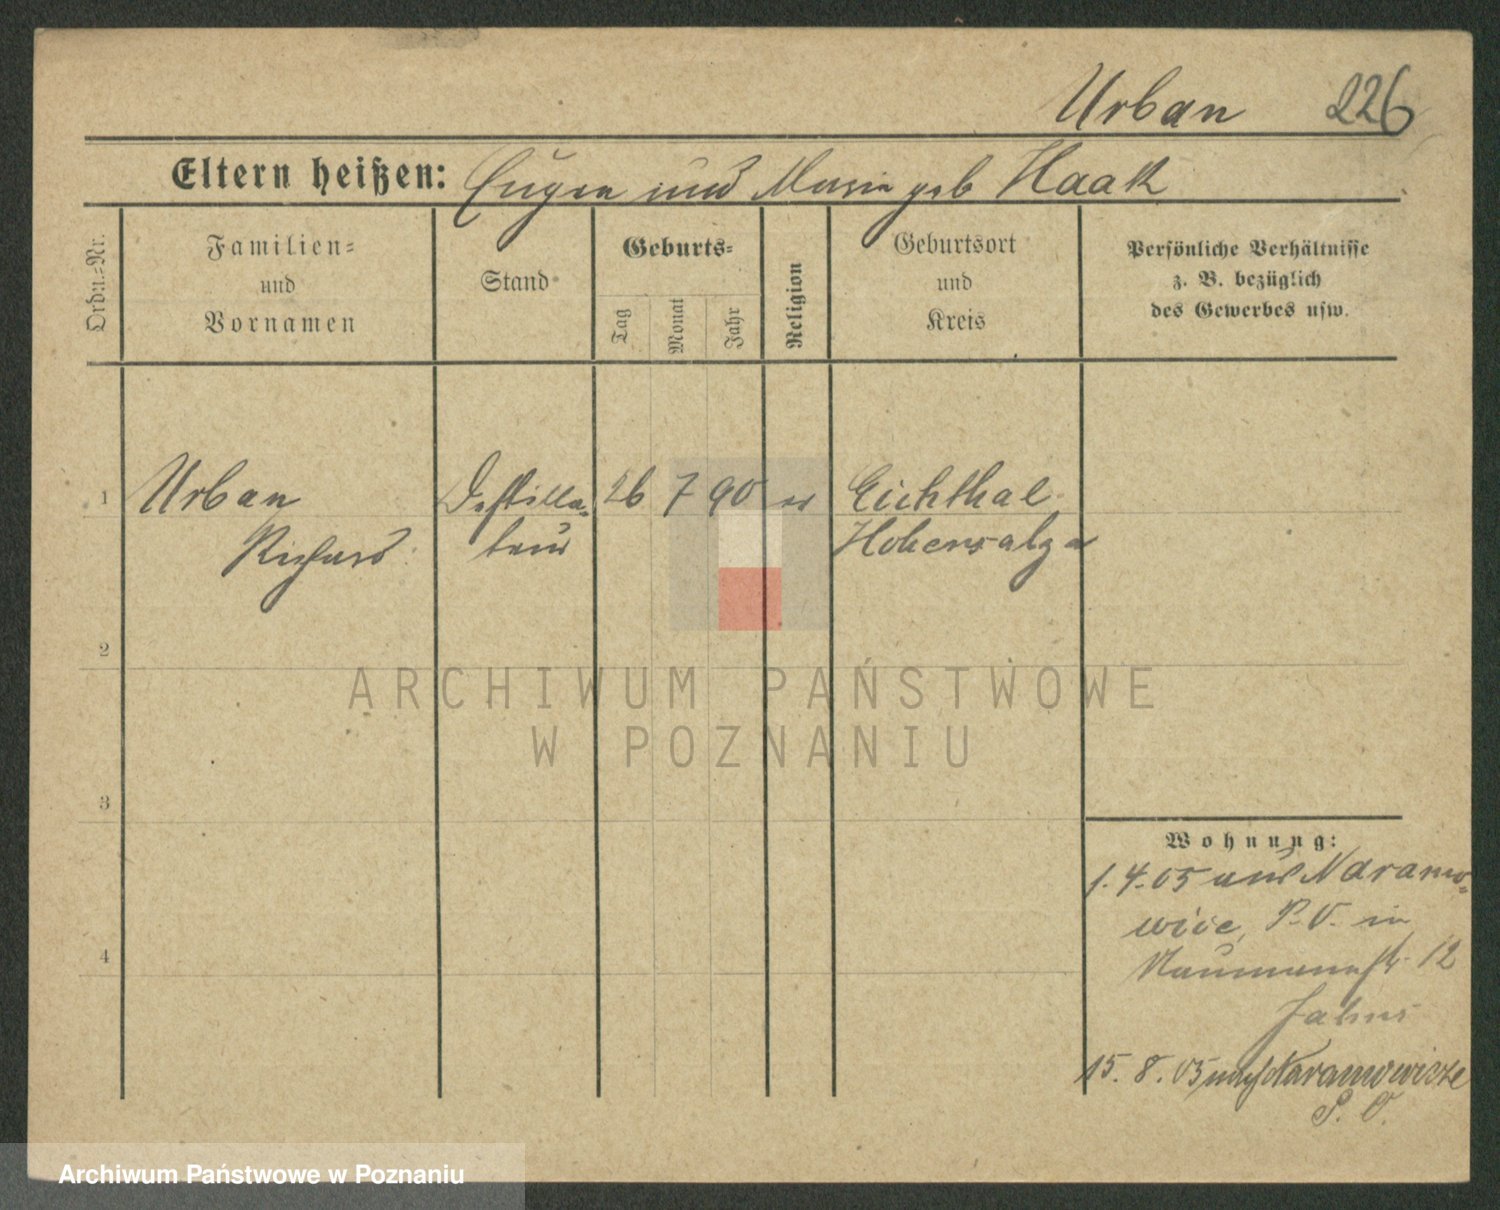 Urban 226
Eltern heißen: Eugen und Marie geb Haak
Ordn.=Nr.
Familien=
und
Vornamen
Stand
Geburts=
Tag
Monat
Jahr
Religion
Geburtsort
und
Kreis
Persönliche Verhältnisse
z. B. bezüglich
des Gewerbes usw.
1 Urban Destilla= 26 7 90 ev Eichthal
Richard Hohensalza
2
3
4
Wohnung:
1.4.05 aus Naramo=
wice, P.O. in
Naumannstr. 12
15. 8. 05 nach Naramowicze
P. O.
ARCHIWUM PAŃSTWOWE
W POZNANIU
Archiwum Państwowe w Poznaniu